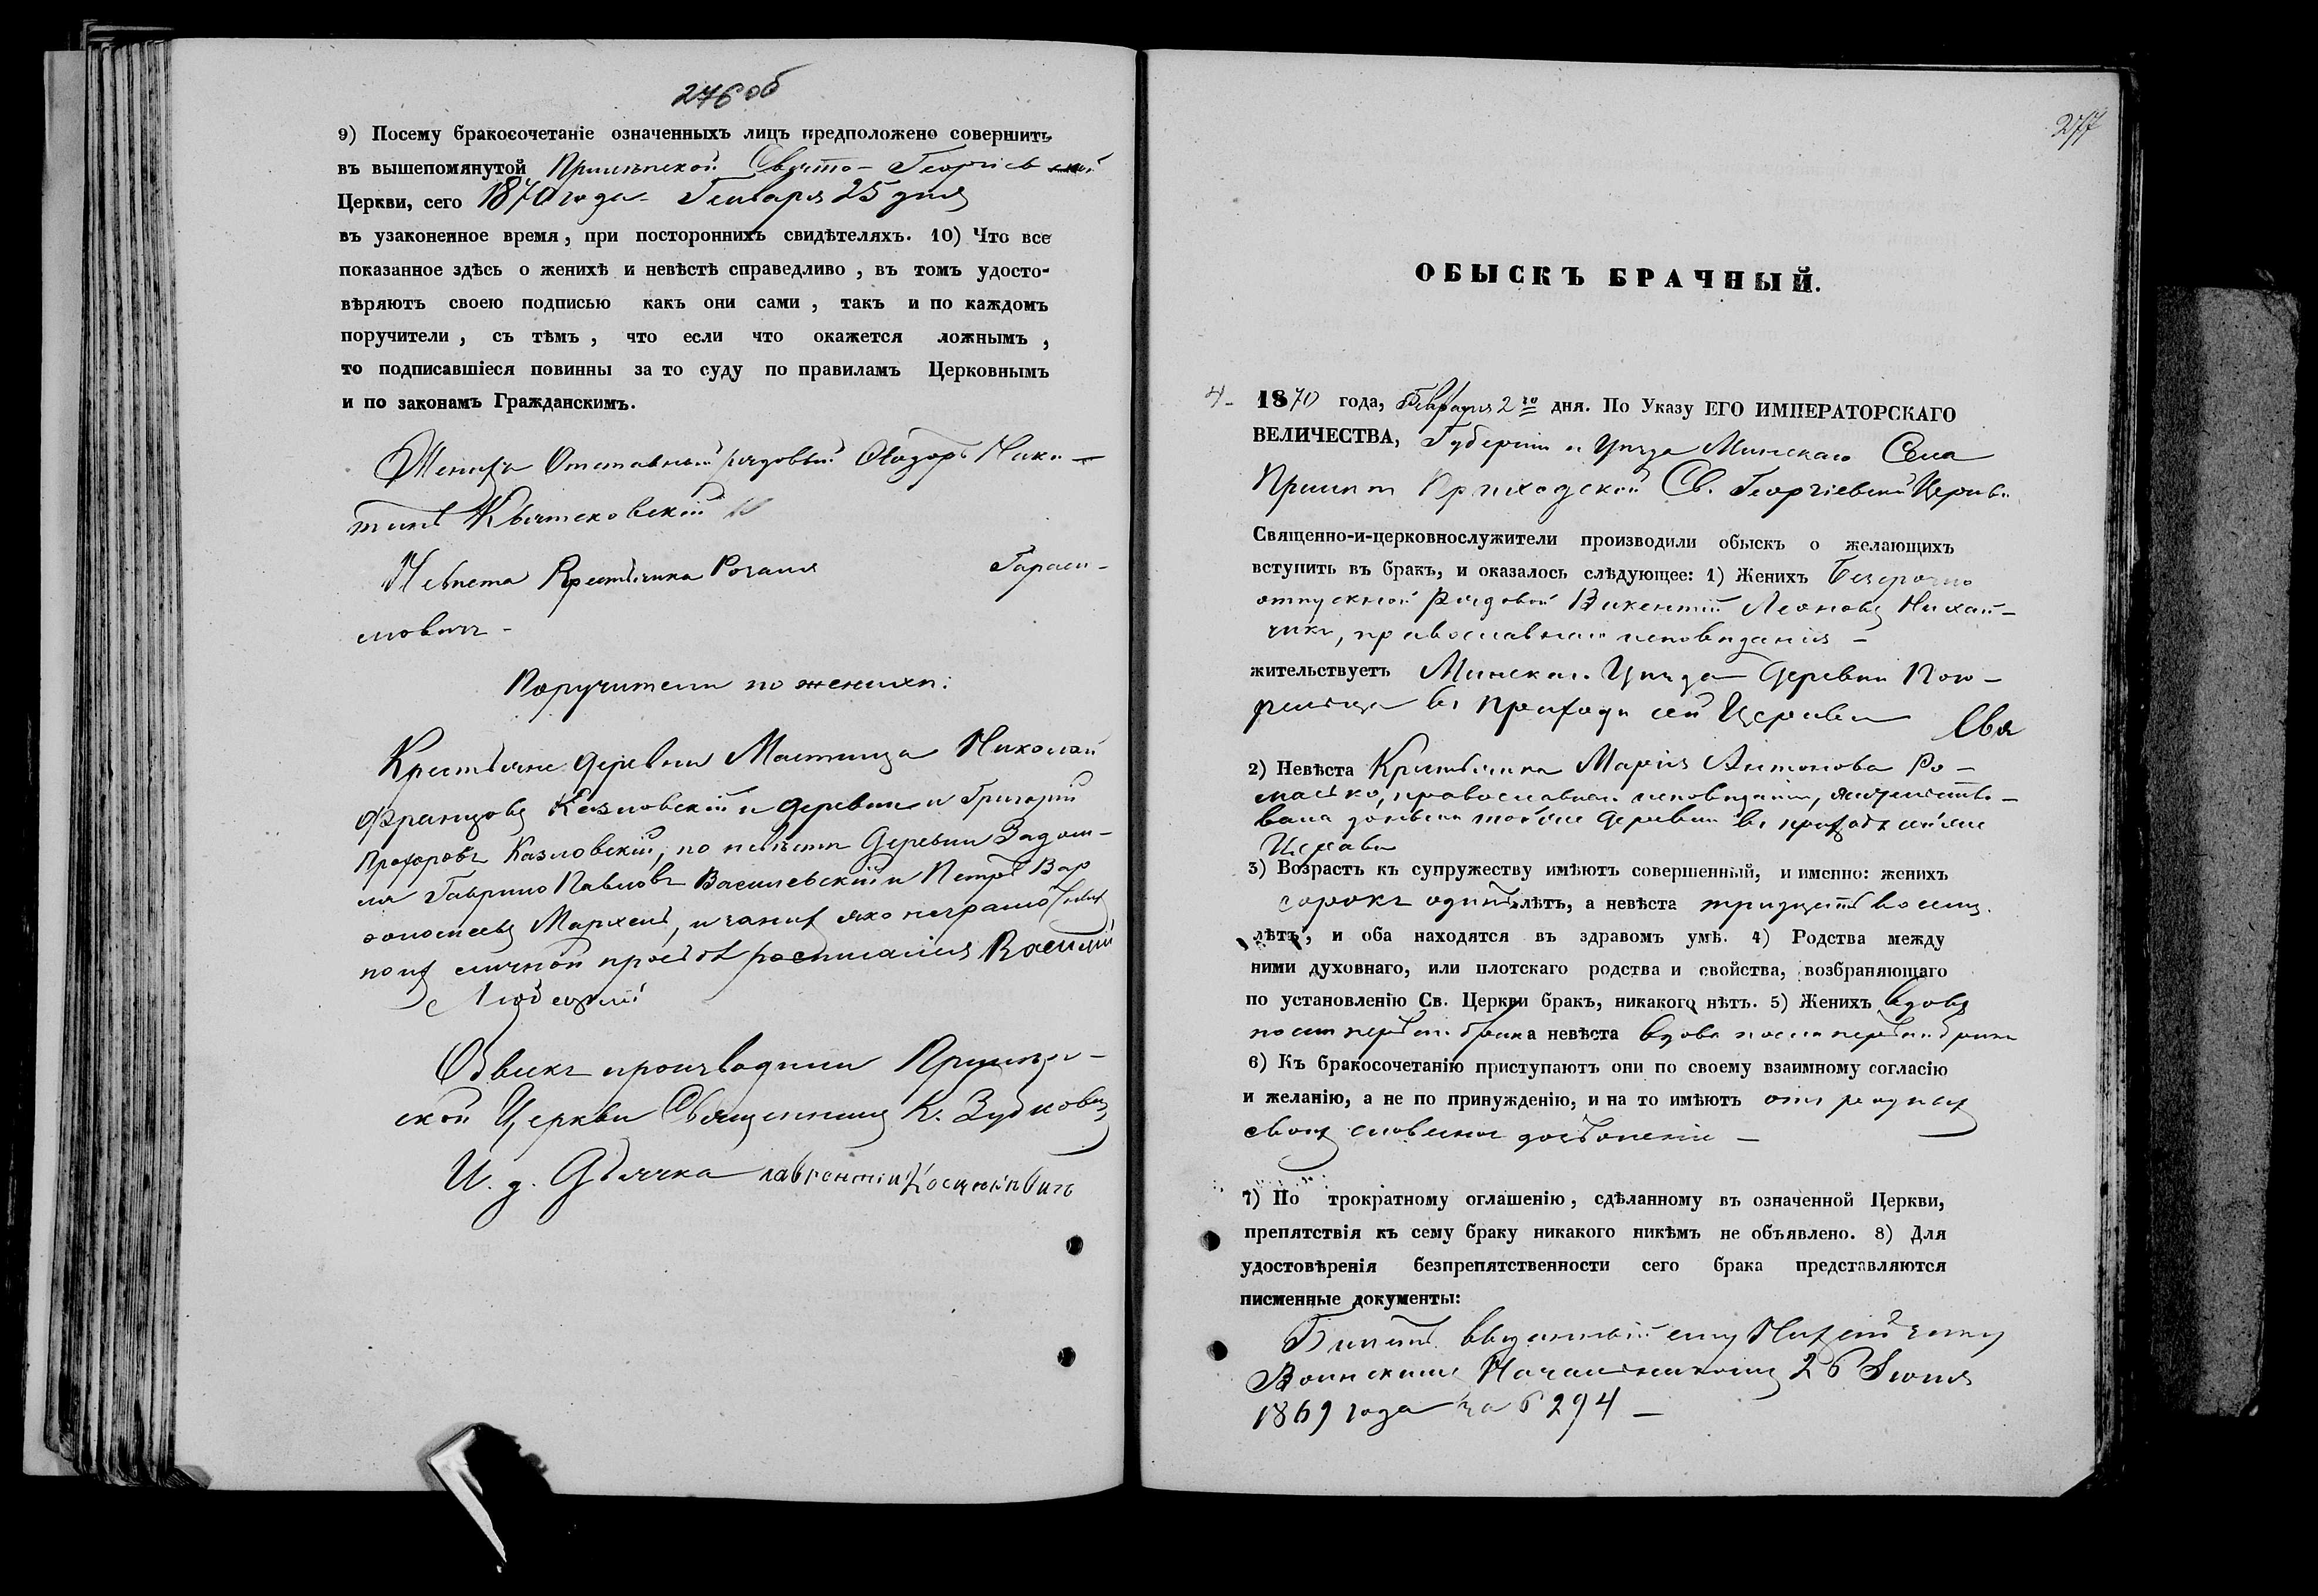 276 об
9) Посему бракосочетаніе означенныхъ лицъ предположено совершить
въ вышепомянутой Прилѣпской Свято-Георгіевской
Церкви, сего 1870 года Генваря 25 дня
въ узаконенное время, при постороннихъ свидѣтеляхъ. 10) Что все
показанное здѣсь о женихѣ и невѣстѣ справедливо, въ томъ удосто-
вѣряютъ своею подписью какъ они сами, такъ и по каждомъ
поручители, съ тѣмъ, что если что окажется ложнымъ,
то подписавшіеся повинны за то суду по правиламъ Церковнымъ
и по законамъ Гражданскимъ.
Женихъ Отставный рядовый Ники-
тинъ
Невѣста Крестьянка Розалія Гараси-
мовичъ
Поручители по женихѣ:
Крестьяне деревни Мастища Николай
Францовъ Козловскій и деревни Григорій
Прохоровъ Казловскій, по невѣстѣ Деревни
Гаврило Павловъ Василевскій и Петръ Вар
а за нихъ яко неграмотныхъ
по ихъ личной просьбѣ росписался Василій
Обыскъ производили Прилѣп-
ской Церкви Священникъ К. Зубковичъ
И. д. Дьячка Лаврентій
277
ОБЫСКЪ БРАЧНЫЙ.
4- 1870 года, Февраля 2го дня. По Указу ЕГО ИМПЕРАТОРСКАГО
ВЕЛИЧЕСТВА, Губерніи и Уѣзда Минскаго Села
Прилѣпъ Приходской Св. Георгіевской Церкви
Священно-и-церковнослужители производили обыскъ о желающихъ
вступить въ бракъ, и оказалось слѣдующее: 1) Женихъ Безсрочно
отпускной Рядовой Викентій Леоновъ Михай-
чикъ, православнаго исповѣданія -
жительствуетъ Минскаго Уѣзда Деревни
въ приходѣ сей Церкви
2) Невѣста Крестьянка Марія Антонова Ро-
манько, православнаго исповѣданія, жительство-
вала Деревни въ приходѣ сей же
Церкви
3) Возрастъ къ супружеству имѣютъ совершенный, и именно: женихъ
сорокъ одинъ лѣтъ, а невѣста тридцать восемь
лѣтъ, и оба находятся въ здравомъ умѣ. 4) Родства между
ними духовнаго, или плотскаго родства и свойства, возбраняющаго
по установленію Св. Церкви бракъ, никакого нѣтъ. 5) Женихъ вдовъ
послѣ перваго брака невѣста вдова послѣ перваго брака
6) Къ бракосочетанію приступаютъ они по своему взаимному согласію
и желанію, а не по принужденію, и на то имѣютъ отъ родныхъ
своихъ словесное дозволеніе -
7) По трократному оглашенію, сдѣланному въ означенной Церкви,
препятствія къ сему браку никакого никѣмъ не объявлено. 8) Для
удостовѣренія безпрепятственности сего брака представляются
писменные документы:
Билетъ выданный ему Михайчику
Воинскимъ Начальникомъ 26 Іюня
1869 года за № 6294 -